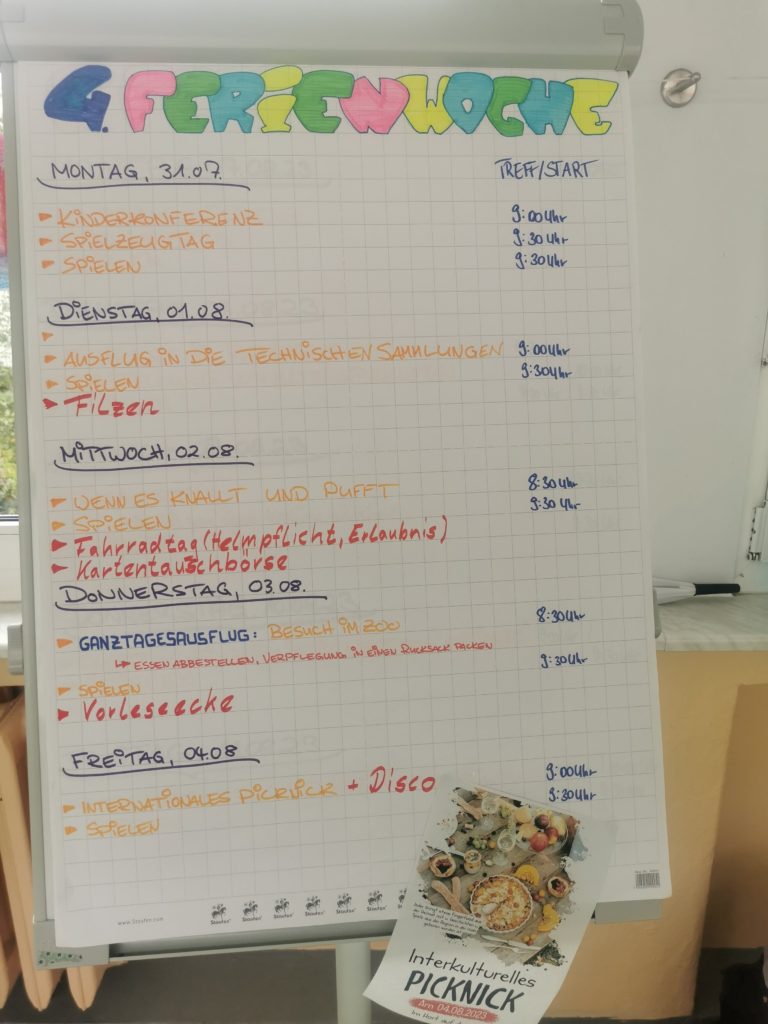 4. FERIENWOCHE
MONTAG, 31.07. TREFF/START
▸ KINDERKONFERENZ 9:00 Uhr
▸ SPIELZEUGTAG 9:30 Uhr
▸ SPIELEN 9:30 Uhr
DIENSTAG, 01.08.
▸
▸ AUSFLUG IN DIE TECHNISCHEN SAMMLUNGEN 9:00 Uhr
▸ SPIELEN 9:30 Uhr
▸ Filzen
MITTWOCH, 02.08.
▸ WENN ES KNALLT UND PUFFT 8:30 Uhr
▸ SPIELEN 9:30 Uhr
▸ Fahrradtag (Helmpflicht, Erlaubnis)
▸ Kartentauschbörse
DONNERSTAG, 03.08.
▸ GANZTAGESAUSFLUG: BESUCH IM ZOO 8:30 Uhr
↳ ESSEN ABBESTELLEN, VERPFLEGUNG IN EINEN RUCKSACK PACKEN
▸ SPIELEN 9:30 Uhr
▸ Vorleseecke
FREITAG, 04.08
▸ INTERNATIONALES PICKNICK + Disco 9:00 Uhr
▸ SPIELEN 9:30 Uhr
www.Staufen.com
Staufen Staufen Staufen Staufen Staufen Staufen
Interkulturelles
PICKNICK
Am 04.08.2023
Im Hort auf